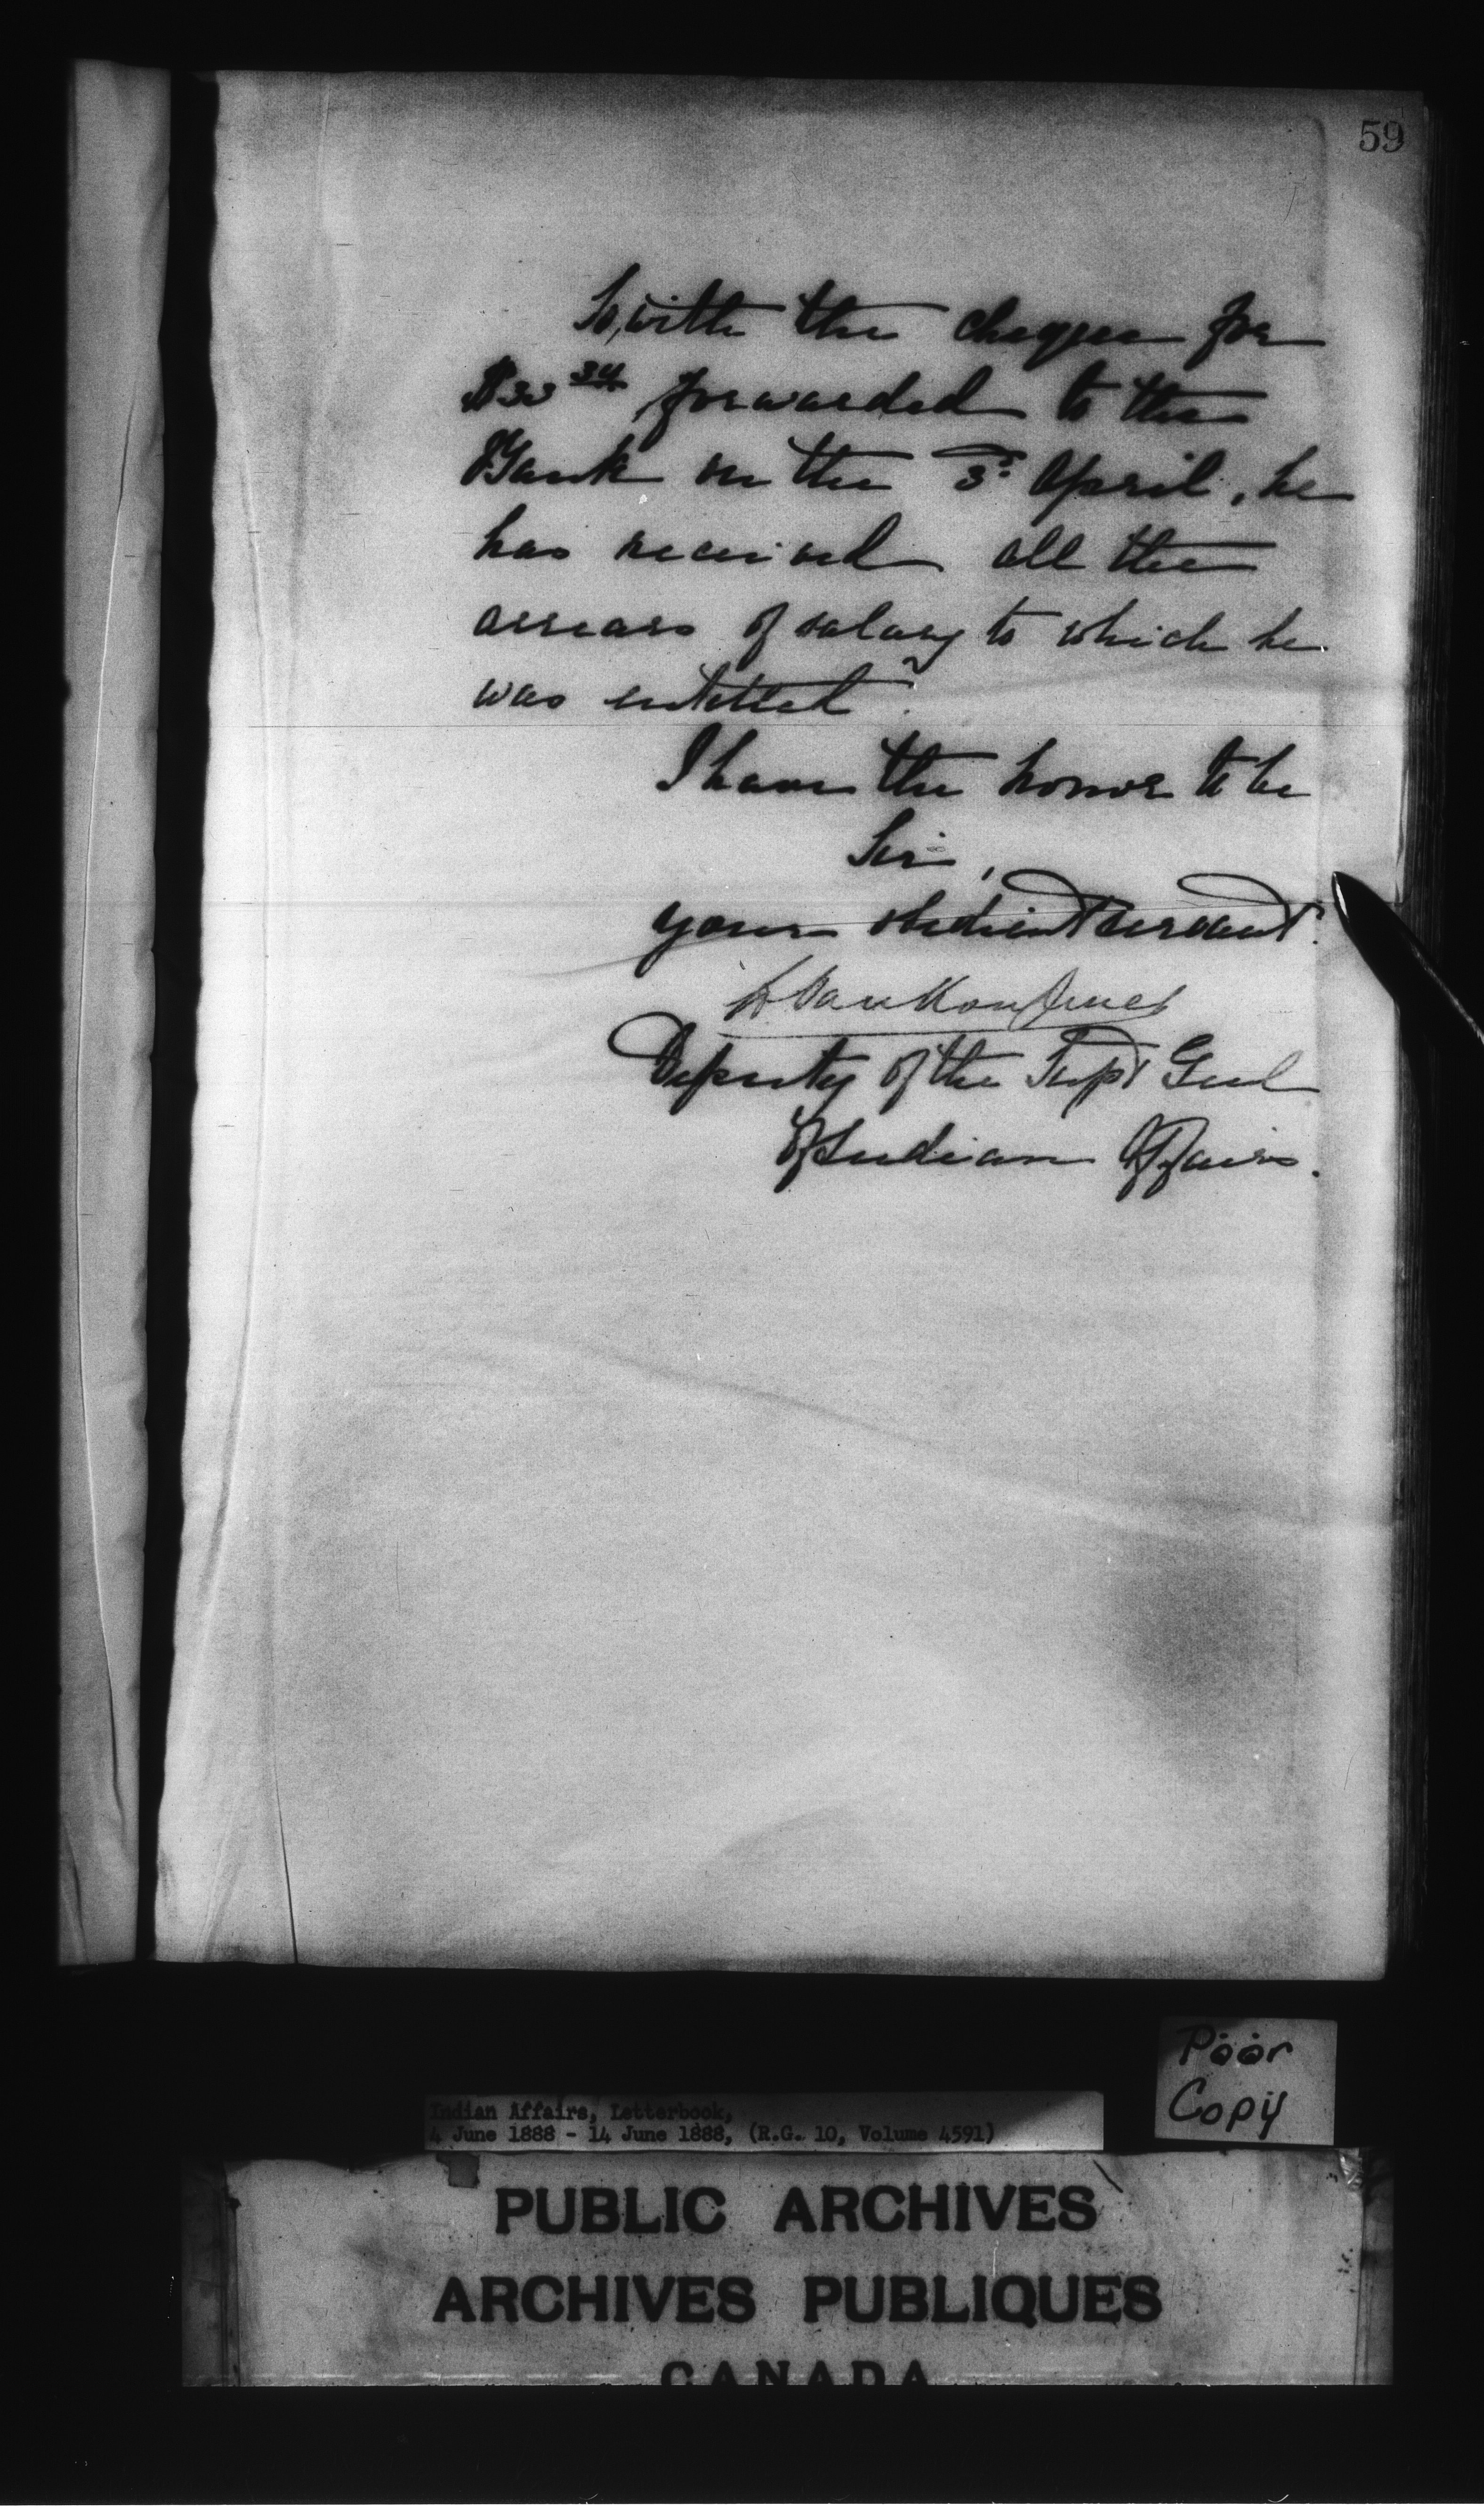 59
So, with the cheque for
forwarded to the
Bank on the 3d April, he
has received all the
arrears of salary to which he
was entitled.
I have the honor to be
Sir,
your obedient servant.
L. Vankoughnet
Deputy of the Supt Genl
of Indian Affairs.
Poor
Copy
Indian Affairs, Letterbook,
4 June 1888 - 14 June 1888, (R.G. 10, Volume 4591)
PUBLIC ARCHIVES
ARCHIVES PUBLIQUES
CANADA